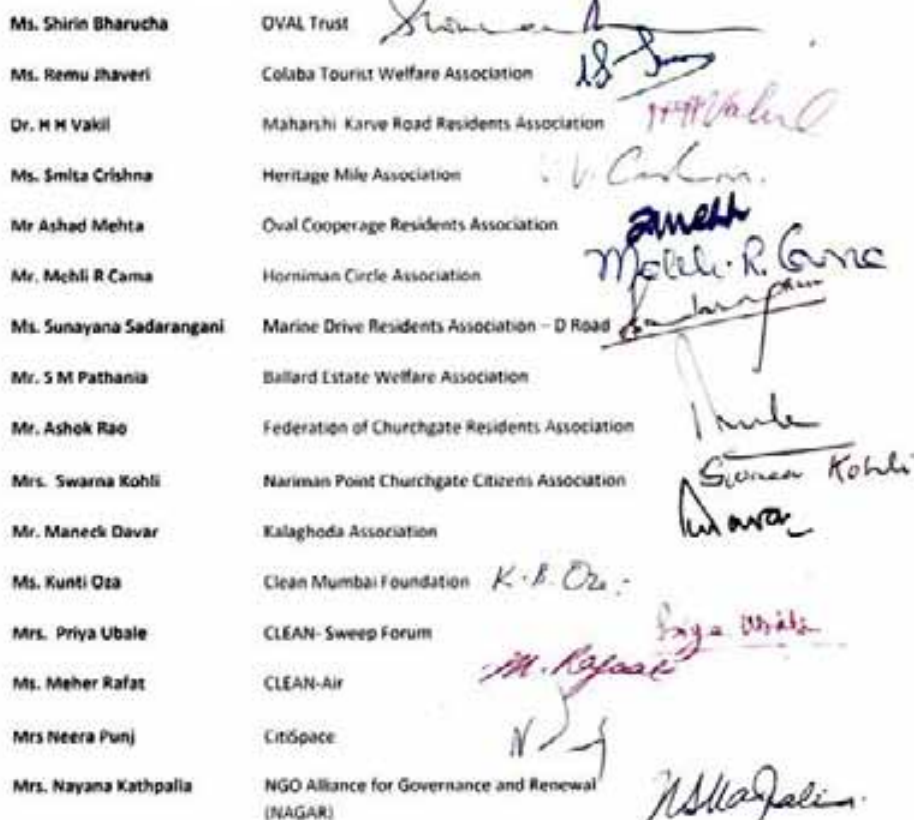 Ms. Shirin Bharucha OVAL Trust
Ms. Remu Jhaveri Colaba Tourist Welfare Association
Dr. H H Vakil Maharshi Karve Road Residents Association
Ms. Smita Crishna Heritage Mile Association
Mr Ashad Mehta Oval Cooperage Residents Association
Mr. Mehli R Cama Horniman Circle Association Mehli. R. Cama
Ms. Sunayana Sadarangani Marine Drive Residents Association – D Road
Mr. S M Pathania Ballard Estate Welfare Association
Mr. Ashok Rao Federation of Churchgate Residents Association
Mrs. Swarna Kohli Nariman Point Churchgate Citizens Association Kohli
Mr. Maneck Davar Kalaghoda Association
Ms. Kunti Oza Clean Mumbai Foundation K. B. Oza
Mrs. Priya Ubale CLEAN- Sweep Forum
Ms. Meher Rafat CLEAN-Air M. Rafaat
Mrs Neera Punj CitiSpace
Mrs. Nayana Kathpalia NGO Alliance for Governance and Renewal
(NAGAR)